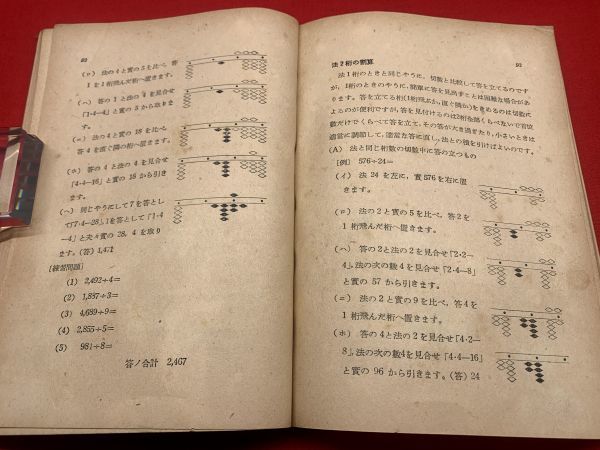 92
(ロ) 法の4と實の5を比べ、答
1を1桁飛んだ桁へ置きます。
(ハ) 答の1と法の4を見合せ
「1・4―4」と實の5から取りま
す。
(ニ) 法の4と實の18を比べ、
答4を直ぐ隣の桁へ置きます。
(ホ) 答の4と法の4を見合せ
「4・4―16」と實の18から引き
ます。
(ヘ) 同じやうにして7を答とし
て「7・4―28」、1を答として「1・4
―4」と夫々實の28, 4を取り
ます。(答) 1,471
[練習問題]
(1) 2,492÷4=
(2) 1,887÷3=
(3) 4,689÷9=
(4) 2,855÷5=
(5) 981÷8=
答ノ合計 2,467
法2桁の割算
93
法1桁のときと同じやうに、切數と比較して答を立てるのです
が、1桁のときのやうに、簡單に答を見出すことは困難な場合があ
ります。答を立てる桁(1桁飛ぶか、直ぐ隣か)をきめるのは切數に
よるのが便利ですが、答を見付けるのは2桁を除くらべないで首
數だけでくらべて答を立て、その答が大き過ぎたり、小さいときは
適當に調節して、適當な答に直し、法との積を引けばよいのです。
(A) 法と同じ桁數の切數中に答の立つもの
[例] 576÷24=
(イ) 法 24 を左に、實576を右に置
きます。
(ロ) 法の2と實の5を比べ、答2を
1桁飛んだ桁へ置きます。
(ハ) 答の2と法の2を見合せ「2・2―
4」、法の次の數4を見合せ「2・4―8」
と實の 57 から引きます。
(ニ) 法の2と實の9を比べ、答4を
1 桁飛んだ桁へ置きます。
(ホ) 答の4と法の2を見合せ「4・2―
8」、法の次の數4を見合せ「4・4―16」
と實の 96 から引きます。(答) 24